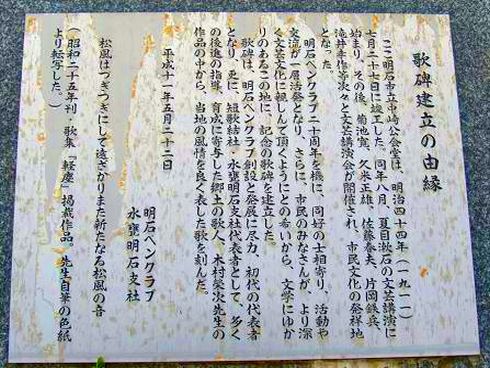 歌碑建立の由縁
ここ明石市立中崎公会堂は、明治四十四年（一九一一）
七月二十七日に竣工した。同年八月、夏目漱石の文芸講演に
始まり、その後、菊池寛、久米正雄、佐藤春夫、片岡鉄兵、
滝井孝作等次々と文芸講演会が開催され、市民文化の発祥地
となった。
明石ペンクラブ二十周年を機に、同好の士相寄り、活動や
交流が一層活発となり、さらに、市民のみなさんが、より深
く文芸文化に親しんで頂くようにとの希いから、文学にゆか
りのあるこの地に、記念の歌碑を建立した。
歌碑は、明石ペンクラブ創設と発展に尽力、初代の代表者
となり、更に、短歌結社・水甕明石支社代表者として、多く
の後進の指導、育成に寄与した郷土の歌人、木村栄次先生の
作品の中から、当地の風情を良く表した歌を刻んだ。
平成十一年五月二十二日
明石ペンクラブ
水甕明石支社
松風はつぎつぎにして遠ざかりまた新たなる松風の音
（昭和二十五年刊・歌集『軽塵』掲載作品・先生自筆の色紙
より転写した。）